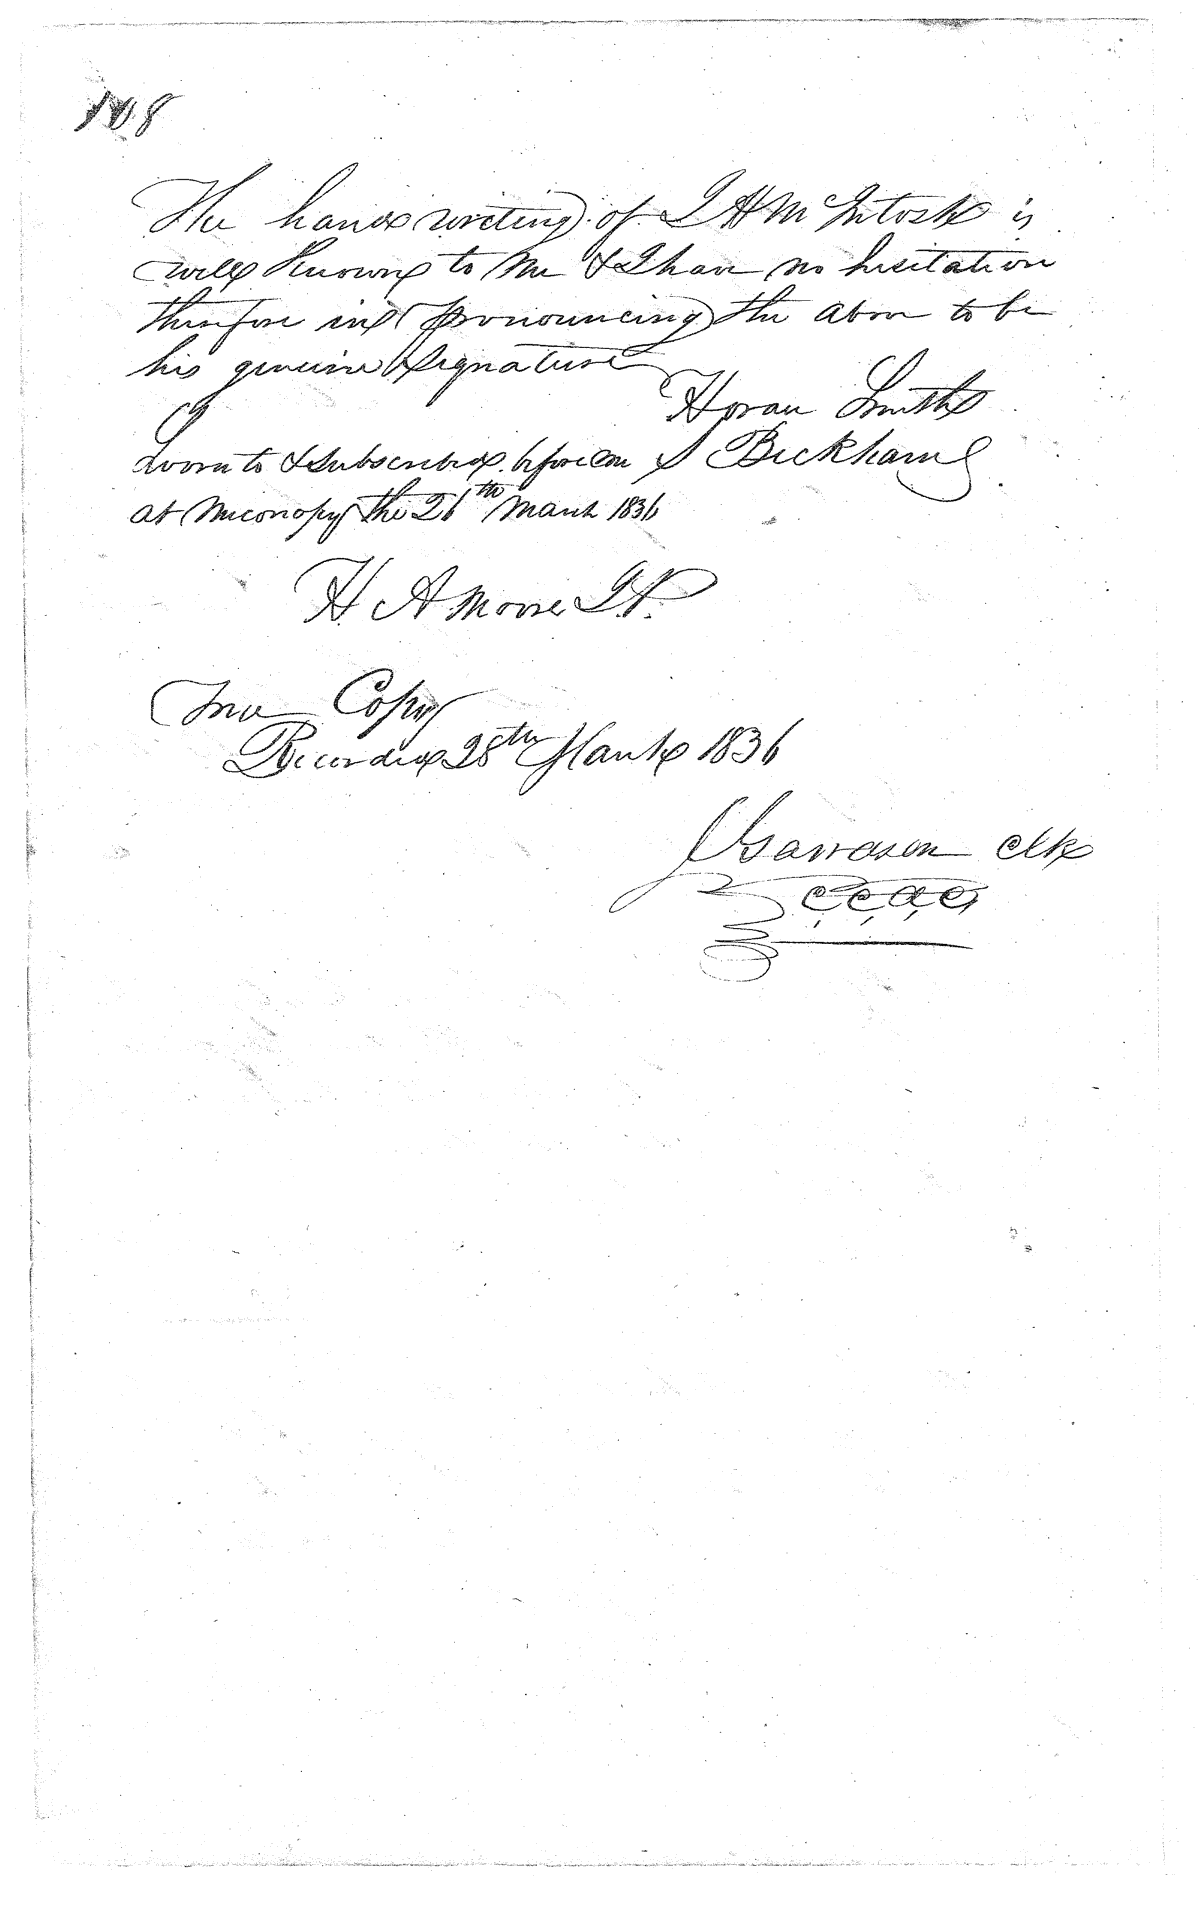 108
The hand writing of J H McIntosh is
well known to me & I have no hesitation
therefore in pronouncing the above to be
his genuine signature
Horan Smith
Sworn to & subscribed before me S Beckham
at Miconopy the 26th March 1836
H. A Moore J.P.
True Copy
Recorded 28th March 1836
Garrason Clk
C,C,A,C,